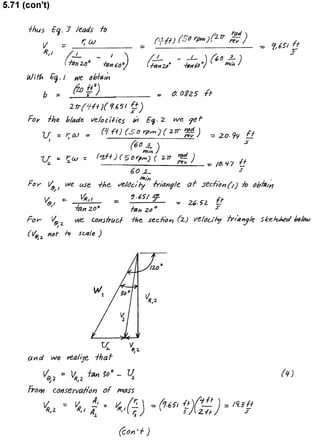 5.71 (con't)
thus Eq. 3 leads to
V_R,1 = r₁ω / (1/tan20° - 1/tan60°) = (4 ft)(50 rpm)(2π rad/rev) / (1/tan20° - 1/tan60°)(60 s/min) = 9.651 ft/s
With Eq. 1 we obtain
b = (20 ft³/s) / 2π(4ft)(9.651 ft/s) = 0.0825 ft
For the blade velocities in Eq. 2 we get
U₁ = r₁ω = (4 ft)(50 rpm)(2π rad/rev) / (60 s/min) = 20.94 ft/s
U₂ = r₂ω = (2ft)(50rpm)(2π rad/rev) / 60 s/min = 10.47 ft/s
For V_θ,1 we use the velocity triangle at section(1) to obtain
V_θ,1 = V_R,1 / tan 20° = 9.651 ft/s / tan 20° = 26.52 ft/s
For V_θ,2 we construct the section (2) velocity triangle sketched below
(V_θ,2 not to scale)
120°
W₁ 30° V_R,2
V₂
U₂ V_θ,2
and we realize that
V_θ,2 = V_R,2 tan 30° - U₂ (4)
From conservation of mass
V_R,2 = V_R,1 A₁/A₂ = V_R,1 (r₁/r₂) = (9.651 ft/s)(4 ft/2 ft) = 19.3 ft/s
(con't)